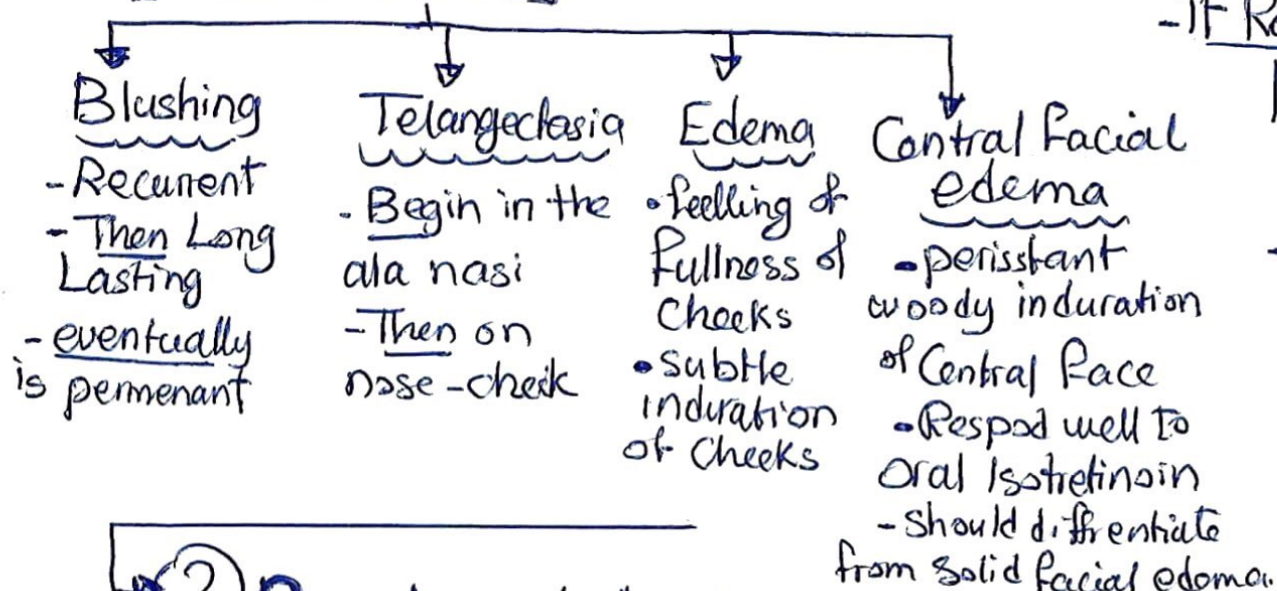 -If
Blushing
-Recurrent
-Then Long
Lasting
-eventually
is permenant
Telangectasia
- Begin in the
ala nasi
-Then on
nose-cheik
Edema
• feelling of
fullness of
Cheeks
• Subtle
induration
of Cheeks
Central facial
edema
- perisstant
woody induration
of Central face
- Respod well to
Oral Isotretinoin
- should diffrentiate
from Solid facial edema.
2